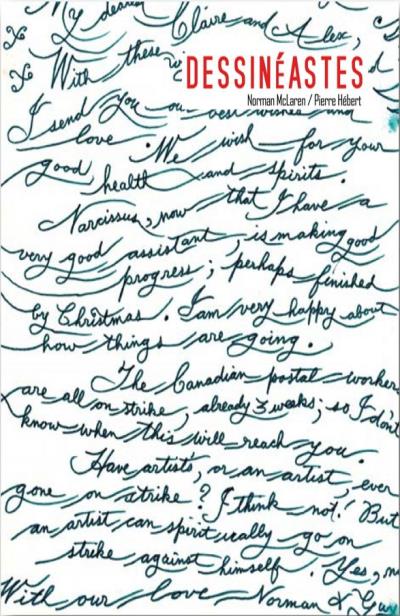 My dearest Claire and Alex,
With these
DESSINÉASTES
Norman McLaren / Pierre Hébert
I send you our best wishes and
love. We wish for your
good health and spirits.
Narcissus, now that I have a
very good assistant, is making good
progress; perhaps finished
by Christmas. I am very happy about
how things are going.
The Canadian postal workers
are all on strike, already 3 weeks; so I don't
know when this will reach you.
Have artists, or an artist, ever
gone on strike? I think not! But
an artist can spiritually go on
strike against himself. Yes, no
With our love Norman & Guy